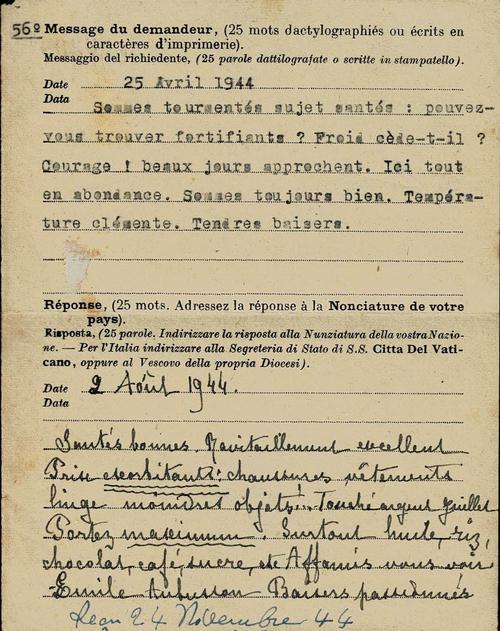 56º Message du demandeur, (25 mots dactylographiés ou écrits en
caractères d'imprimerie).
Messaggio del richiedente, (25 parole dattilografate o scritte in stampatello).
Date 25 Avril 1944
Data
Sommes tourmentés sujet santés : pouvez-
vous trouver fortifiants ? Froid cède-t-il ?
Courage ! beaux jours approchent. Ici tout
en abondance. Sommes toujours bien. Tempéra-
ture clémente. Tendres baisers.
Réponse, (25 mots. Adressez la réponse à la Nonciature de votre
pays).
Risposta, (25 parole. Indirizzare la risposta alla Nunziatura della vostra Nazio-
ne. — Per l'Italia indirizzare alla Segreteria di Stato di S.S. Citta Del Vati-
cano, oppure al Vescovo della propria Diocesi).
Date 2 Août 1944.
Data
Santés bonnes. Ravitaillement excellent
Prix exorbitants : chaussures vêtements
linge moindres objets!.. Touché argent Juillet
Portez maximum. Surtout huile, riz,
chocolat, café, sucre, etc Affamés vous voir
Emile Aubusson Baisers passionnés
Reçu 24 Novembre 44